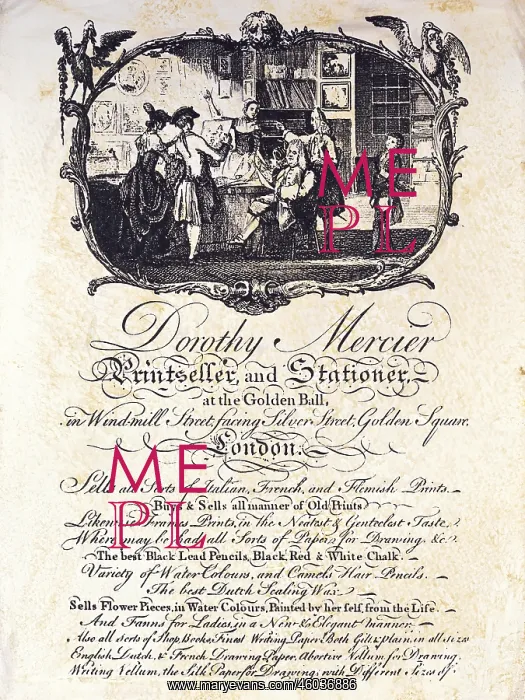 Dorothy Mercier
Printseller, and Stationer,
at the Golden Ball,
in Wind-mill Street, facing Silver Street, Golden Square.
London.
Sells all Sorts of Italian, French, and Flemish Prints.
Buys & Sells all manner of Old Prints
Likewise Frames Prints, in the Neatest & Genteelest Taste,
Where may be had all Sorts of Paper for Drawing, &c.
The best Black Lead Pencils, Black, Red & White Chalk.
Variety of Water Colours, and Camels Hair Pencils.
The best Dutch Sealing Wax.
Sells Flower Pieces, in Water Colours, Painted by her self, from the Life.
And Fanns for Ladies, in a New & Elegant manner.
Also all sorts of Shop Books, Finest Writing Paper, Both Gilt & plain, in all sizes
English, Dutch, & French Drawing Paper, Abortive Vellum, for Drawing,
Writing Vellum, the Silk Paper for Drawing; with Different Sizes of
ME
PL
ME
PL
www.maryevans.com/46036886